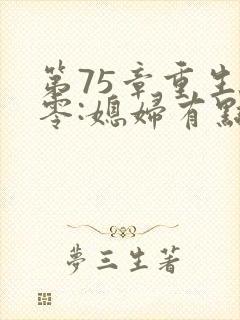 第75章重生
零:媳婦有點
夢三生著